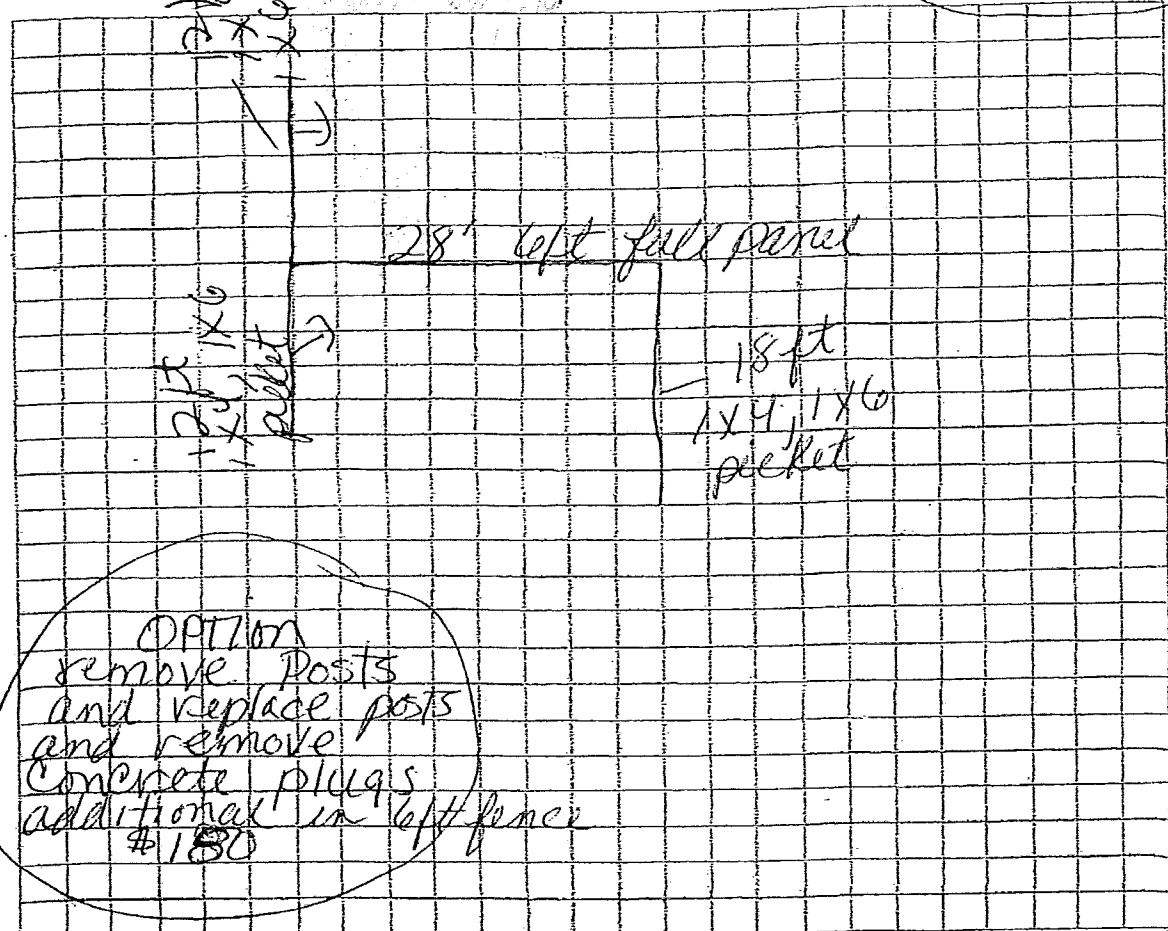 12ft
1X
1X6
28' 6ft full panel
12ft
1X4, 1X6
picket
18ft
1X4, 1X6
picket
OPTION
remove Posts
and replace posts
and remove
Concrete plugs
additional in 6ft fence
$180